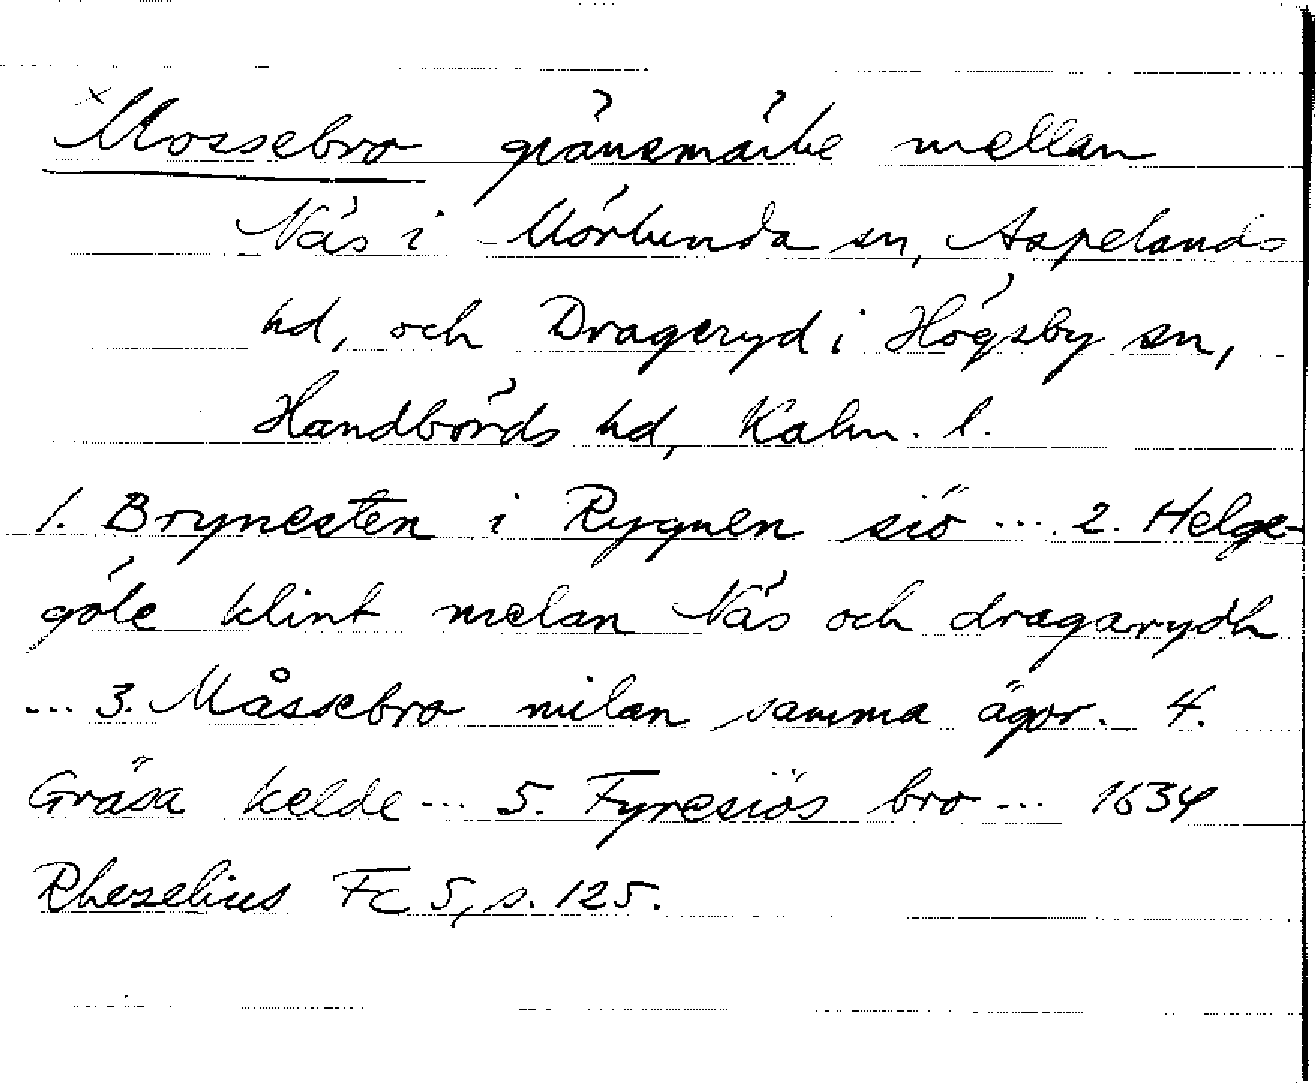 ×Mossebro gränsmärke mellan
Näs i Mörlunda sn, Aspelands
hd, och Drageryd i Högsby sn,
Handbörds hd, Kalm. l.
1. Brynesten i Rygnen siö ... 2. Helge-
göle klint melan Näs och dragarydh
... 3. Måssebro milan samma ägor. 4.
Gräsa kelde ... 5. Fyresiös bro ... 1634
Rhezelius Fc 5, s. 125.